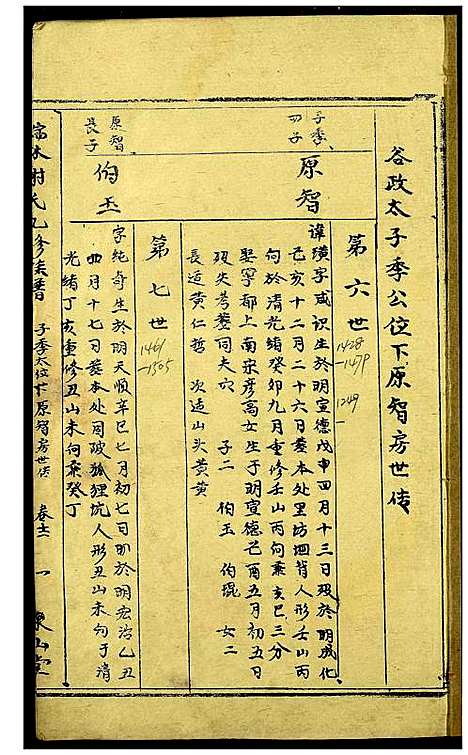 谷政太子季公位下原智房世传
第六世
1428
-1479
1249
-
子季
四子
原智
讳璜字咸识生於明宣德戊申四月十三日殁於明成化
己亥十二月二十六日葬本处里坊坦背人形壬山丙
向於清光绪癸卯九月重修壬山丙向兼亥巳三分
娶宁都上南宋彦高女生于明宣德己酉五月初五日
殁失考葬同夫穴 子二 伯玉 伯琨 女二
長适黄仁哲 次适山头黄黄
第七世
1461
-1505
原智
長子
伯玉
字纯奇生於明天顺辛巳七月初七日殁於明宏治乙丑
四月十七日葬本处同陂狐狸坑人形丑山未向于清
光绪丁亥重修丑山未向兼癸丁
林谢氏九修族谱 子季太位下原智房世传 卷士 一 東山堂